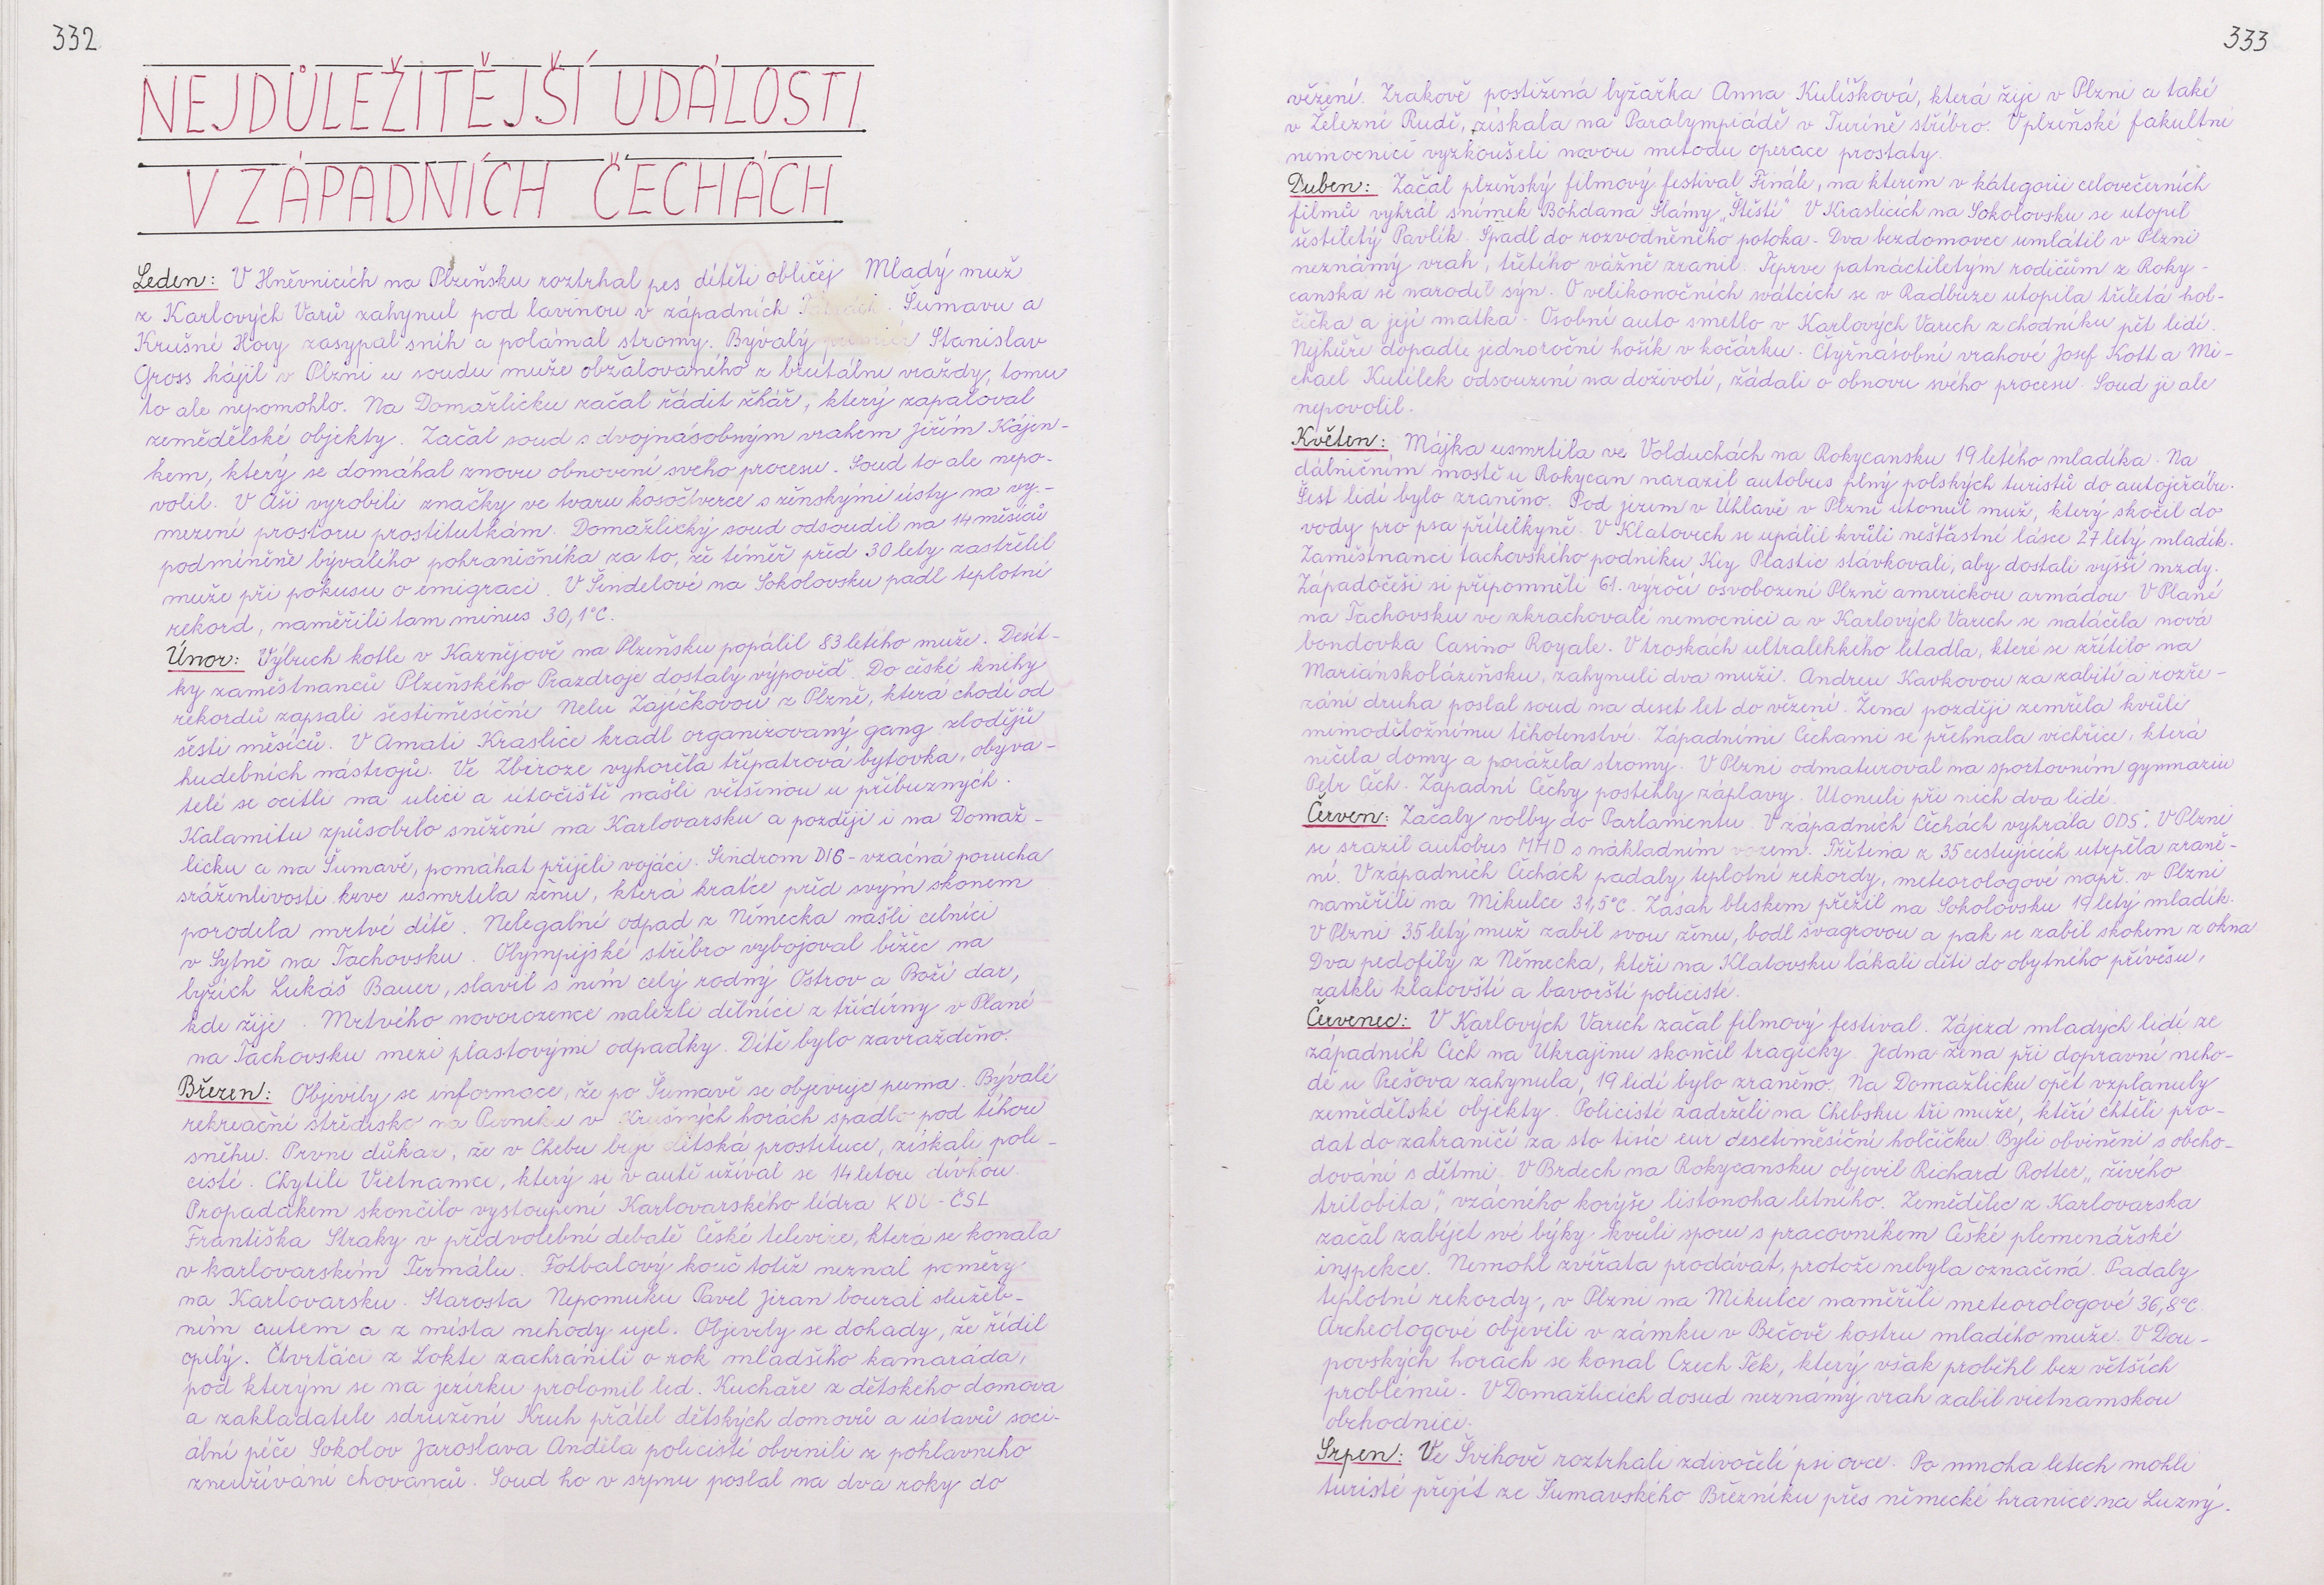 332
NEJDŮLEŽITĚJŠÍ UDÁLOSTI
V ZÁPADNÍCH ČECHÁCH
Leden: V Hněvnicích na Plzeňsku roztrhal pes dítěti obličej Mladý muž
z Karlových Varů zahynul pod lavinou v západních Tatrách. Šumavu a
Krušné Hory zasypal sníh a polámal stromy. Bývalý premiér Stanislav
Gross hájil v Plzni u soudu muže obžalovaného z brutální vraždy, tomu
to ale nepomohlo. Na Domažlicku začal řádit žhář, který zapaloval
zemědělské objekty. Začal soud s dvojnásobným vrahem Jiřím Kájín-
kem, který se domáhal znovu obnovení svého procesu. Soud to ale nepo-
volil. V Aši vyrobili značky ve tvaru kosočtverce s ženskými ústy na vy-
mezení prostoru prostitutkám. Domažlický soud odsoudil na 14 měsíců
podmíněně bývalého pohraničníka za to, že téměř před 30 lety zastřelil
muže při pokusu o emigraci. V Šindelové na Sokolovsku padl teplotní
rekord, naměřili tam minus 30,1°C.
Únor: Výbuch kotle v Kaznějově na Plzeňsku popálil 83 letého muže. Desít-
ky zaměstnanců Plzeňského Prazdroje dostaly výpověď. Do české knihy
rekordů zapsali šestiměsíční Nelu Zajíčkovou z Plzně, která chodí od
šesti měsíců. V Amati Kraslice kradl organizovaný gang zlodějů
hudebních nástrojů. Ve Zbiroze vyhořela třípatrová bytovka, obyva-
telé se ocitli na ulici a útočiště našli většinou u příbuzných.
Kalamitu způsobilo sněžení na Karlovarsku a později i na Domaž-
licku a na Šumavě, pomáhat přijeli vojáci. Sindrom DIG - vzácná porucha
sráženlivosti krve usmrtila ženu, která krátce před svým skonem
porodila mrtvé dítě. Nelegální odpad z Německa našli celníci
v Sytně na Tachovsku. Olympijské stříbro vybojoval běžec na
lyžích Lukáš Bauer, slavil s ním celý rodný Ostrov a Boží dar,
kde žije. Mrtvého novorozence nalezli dělníci z třídírny v Plané
na Tachovsku mezi plastovými odpadky. Dítě bylo zavražděno.
Březen: Objevily se informace, že po Šumavě se objevuje puma. Bývalé
rekreační středisko na Perninku v Krušných horách spadlo pod tíhou
sněhu. První důkaz, že v Chebu bují dětská prostituce, získali poli-
cisté. Chytili Vietnamce, který se v autě užíval se 14 letou dívkou.
Propadákem skončilo vystoupení Karlovarského lídra KDU-ČSL
Františka Straky v předvolební debatě České televize, která se konala
v karlovarském Termálu. Fotbalový kouč totiž neznal poměry
na Karlovarsku. Starosta Nepomuku Pavel Jiran boural služeb-
ním autem a z místa nehody ujel. Objevily se dohady, že řídil
opilý. Čtvrťáci z Lokte zachránili o rok mladšího kamaráda,
pod kterým se na jezírku prolomil led. Kuchaře z dětského domova
a zakladatele sdružení Kruh přátel dětských domovů a ústavů soci-
ální péče Sokolov Jaroslava Anděla policisté obvinili z pohlavního
zneužívání chovanců. Soud ho v srpnu poslal na dva roky do
333
vězení. Zrakově postižená lyžařka Anna Kulíšková, která žije v Plzni a také
v Železné Rudě, získala na Paralympiádě v Turíně stříbro. V plzeňské fakultní
nemocnici vyzkoušeli novou metodu operace prostaty.
Duben: Začal plzeňský filmový festival Finále, na kterém v kategorii celovečerních
filmů vyhrál snímek Bohdana Slámy „Štěstí" V Kraslicích na Sokolovsku se utopil
šestiletý Pavlík. Spadl do rozvodněného potoka. Dva bezdomovce umlátil v Plzni
neznámý vrah, třetího vážně zranil. Teprve patnáctiletým rodičům z Roky-
canska se narodil syn. O velikonočních svátcích se v Radbuze utopila tříletá hol-
čička a její matka. Osobní auto smetlo v Karlových Varech z chodníku pět lidí.
Nejhůře dopadlo jednoroční hošík v kočárku. Čtyřnásobní vrahové Josef Kott a Mi-
chael Kutílek odsouzení na doživotí, žádali o obnovu svého procesu. Soud ji ale
nepovolil.
Květen: Májka usmrtila ve Volduchách na Rokycansku 19 letého mladíka. Na
dálničním mostě u Rokycan narazil autobus plný polských turistů do autojeřábu.
Šest lidí bylo zraněno. Pod jezem v Úhlavě v Plzni utonul muž, který skočil do
vody pro psa přítelkyně. V Klatovech se upálil kvůli nešťastné lásce 27 letý mladík.
Zaměstnanci tachovského podniku Key Plastic stávkovali, aby dostali vyšší mzdy.
Západočeši si připomněli 61. výročí osvobození Plzně americkou armádou V Plané
na Tachovsku ve zkrachovalé nemocnici a v Karlových Varech se natáčela nová
bondovka Casino Royale. V troskách ultralehkého letadla, které se zřítilo na
Mariánskolázeňsku, zahynuli dva muži. Andreu Kavkovou za zabití a rozře-
zání druha poslal soud na deset let do vězení. Žena později zemřela kvůli
mimoděložnímu těhotenství. Západními Čechami se přehnala vichřice, která
ničila domy a porážela stromy. V Plzni odmaturoval na sportovním gymnaziu
Petr Čech. Západní Čechy postihly záplavy. Utonuli při nich dva lidé.
Červen: Začaly volby do Parlamentu. V západních Čechách vyhrála ODS. V Plzni
se srazil autobus MHD s nákladním vozem. Třetina z 35 cestujících utrpěla zraně-
ní. V západních Čechách padaly teplotní rekordy, meteorologové např. v Plzni
naměřili na Mikulce 31,5°C. Zásah bleskem přežil na Sokolovsku 19 letý mladík.
V Plzni 35 letý muž zabil svou ženu, bodl švagrovou a pak se zabil skokem z okna
Dva pedofily z Německa, kteří na Klatovsku lákali děti do obytného přívěsu,
zatkli klatovští a bavorští policisté.
Červenec: V Karlových Varech začal filmový festival. Zájezd mladých lidí ze
západních Čech na Ukrajinu skončil tragicky. Jedna žena při dopravní neho-
dě u Prešova zahynula, 19 lidí bylo zraněno. Na Domažlicku opět vzplanuly
zemědělské objekty. Policisté zadrželi na Chebsku tři muže, kteří chtěli pro-
dat do zahraničí za sto tisíc eur desetiměsíční holčičku. Byli obviněni s obcho-
dování s dětmi. V Brdech na Rokycansku objevil Richard Rotter „živého
trilobita", vzácného korýše listonoha letního. Zemědělec z Karlovarska
začal zabíjet své býky kvůli sporu s pracovníkem České plemenářské
inspekce. Nemohl zvířata prodávat, protože nebyla označená. Padaly
teplotní rekordy, v Plzni na Mikulce naměřili meteorologové 36,8°C.
Archeologové objevili v zámku v Bečově kostru mladého muže. V Dou-
povských horách se konal Czech Tek, který však proběhl bez větších
problémů. V Domažlicích dosud neznámý vrah zabil vietnamskou
obchodnici.
Srpen: Ve Švihově roztrhali zdivočelí psi ovce. Po mnoha letech mohli
turisté přejít ze Šumavského Březníku přes německé hranice na Luzný.